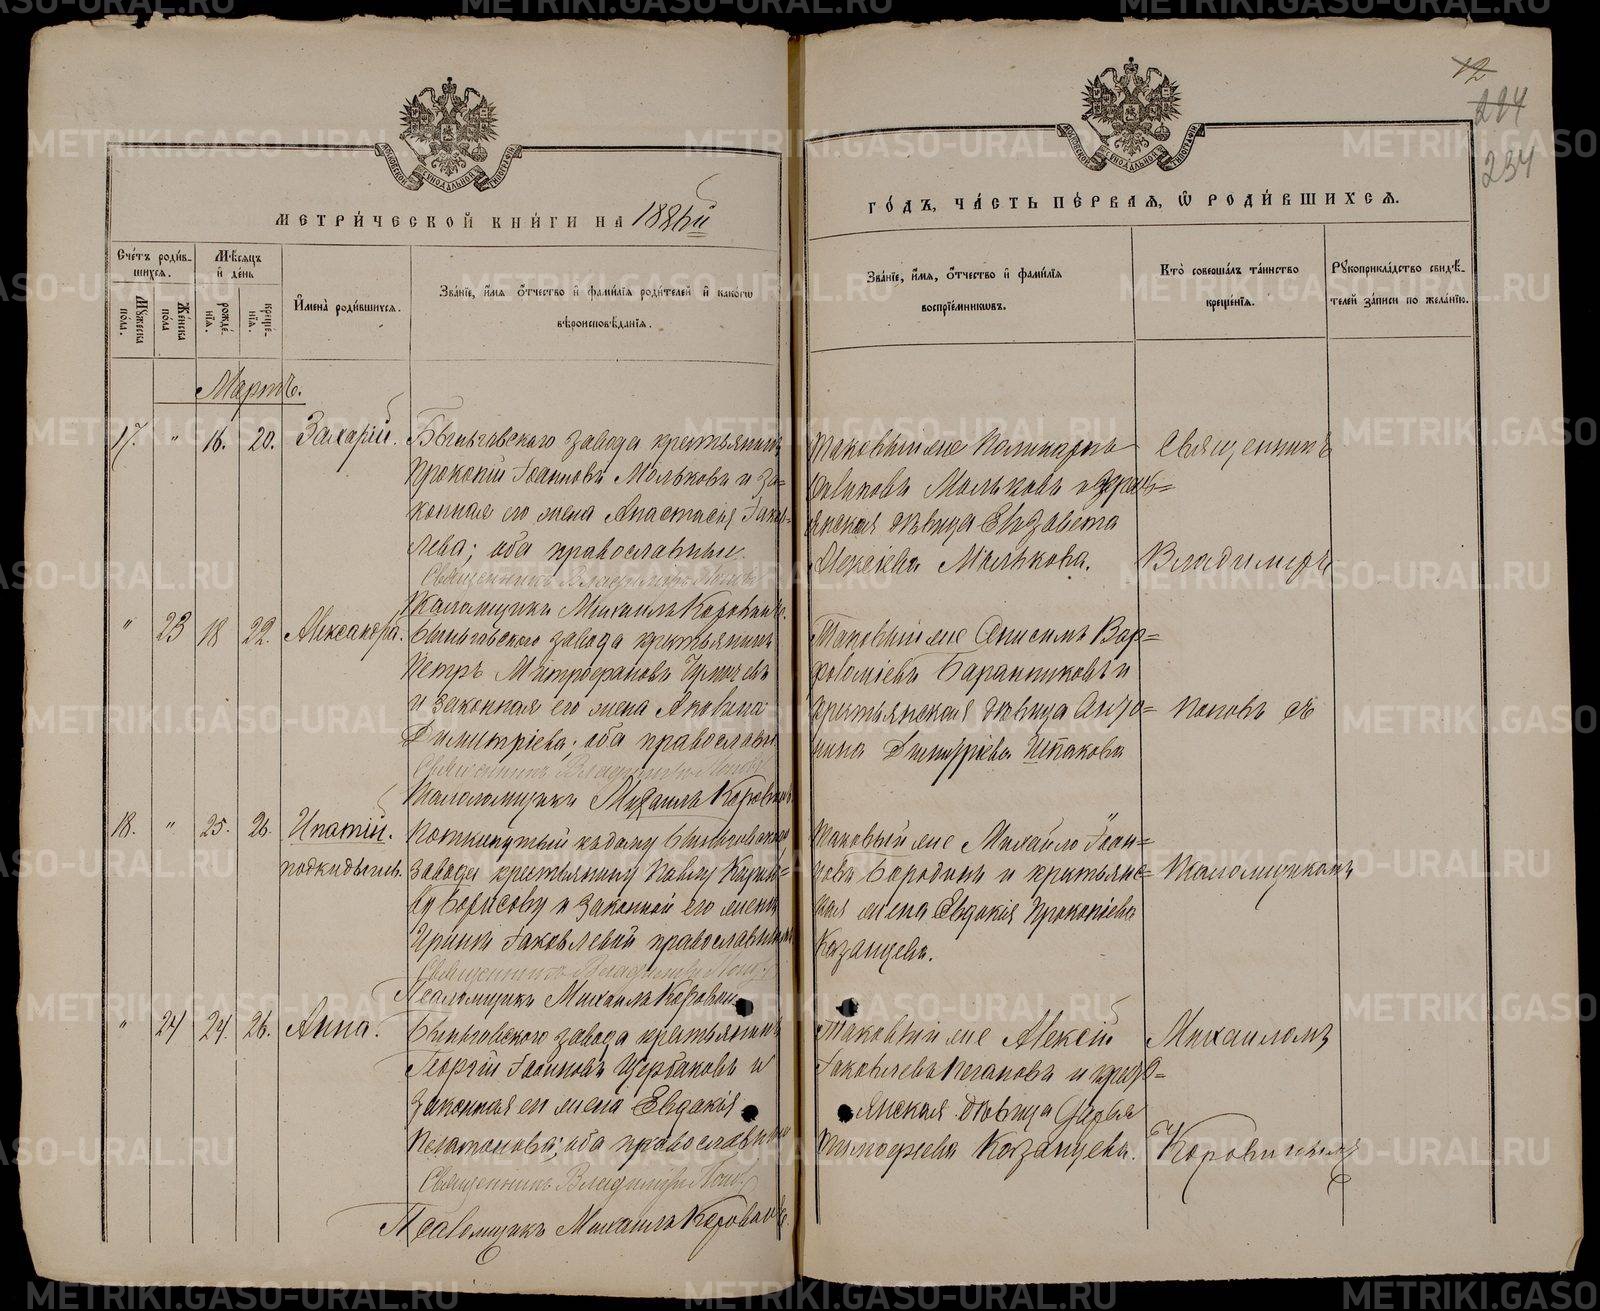 12
224
234
МЕТРИ́ЧЕСКОЙ КНИ́ГИ НА 1886й
ГО́ДЪ, ЧА́СТЬ ПЕ́РВАЯ, Ѿ РОДИ́ВШИХСЯ.
Сче́тъ роди́в-
шихся.
Мѣ́сяцъ
и де́нь
Му́жеска
по́ла.
Же́нска
по́ла
рожде́-
нїя.
креще́-
нїя.
Имена̀ роди́вшихся.
Зва́нїе, и́мя ѻ҆́тчество и фами́лїя роди́телей и како́гѡ
вѣроисповѣ́данїя.
Зва́нїе, и́мя, ѻ҆́тчество и фами́лїя
воспрїе́мникѡвъ.
Кто̀ соверша́лъ та́инство
креще́нїя.
Рꙋкоприкла́дство свидѣ́-
телей за́писи по жела́нїю.
Мартъ.
17. " 16. 20. Захарій.
Быньговскаго завода крестьянинъ
Прокопій Іоанновъ Мольковъ и за-
конная его жена Анастасія Іаков-
лева; оба православные.
Священникъ Владиміръ Поповъ
Псаломщикъ Михаилъ Коровинъ.
Таковый же Поликарпъ
Мольковъ и крест-
янская дѣвица Елизавета
Алексіева Молькова.
Священникъ
Владиміръ
" 23 18 22. Александра.
Быньговскаго завода крестьянинъ
Петръ Митрофановъ
и законная его жена Акилина
Димитріева; оба православн.
Священникъ Владиміръ Поповъ
Псаломщикъ Михаилъ Коровинъ
Таковый же Анисимъ Вар-
фоломіевъ Баранниковъ и
крестьянская дѣвица Анто-
нина Димитріева Шпакова
Поповъ съ
18. " 25. 26. Ипатій.
подкидышъ.
Подкинутый къ дому Быньговскаго
завода крестьянину Павлу
Борисову и законной его жены
Ирины Іаковлевой православныхъ
Священникъ Владиміръ Поповъ
Псаломщикъ Михаилъ Коровинъ
Таковый же Михайло Іоан-
новъ Бородинъ и крестьянс-
кая жена Евдокія Прокопіева
Казанцева.
Псаломщикомъ
" 24 24. 26. Анна.
Быньговскаго завода крестьянинъ
Георгій Іоанновъ Щербаковъ и
законная его жена Евдокія
Платонова; оба православные
Священникъ Владиміръ Поповъ
Псаломщикъ Михаилъ Коровинъ.
Таковый же Алексѣй
Іаковлевъ и крест-
янская дѣвица Дарья
Тимофеева Казанцева.
Михаиломъ
Коровинымъ
METRIKI.GASO-URAL.RU